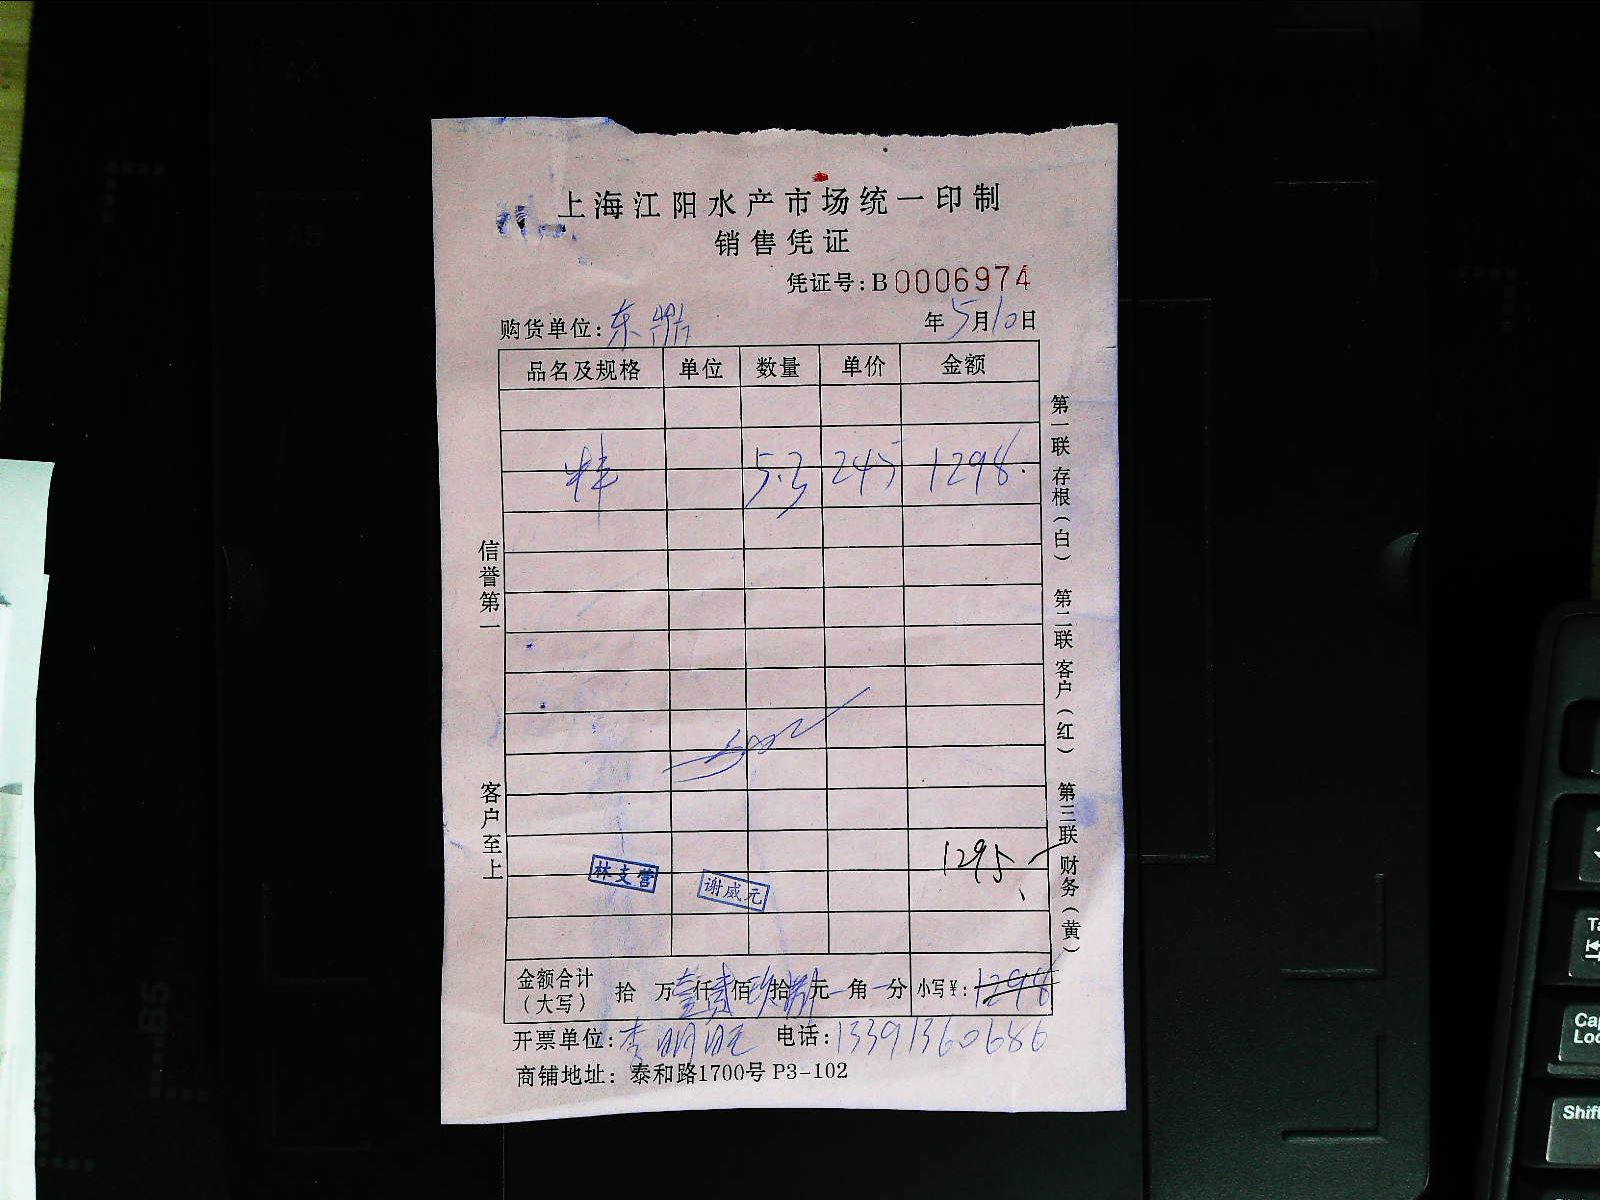 上海江阳水产市场统一印制
销售凭证
凭证号:B0006974
购货单位:东鼎 年5月10日
品名及规格 单位 数量 单价 金额
5.3 245 1298.
1295
林支营 谢威元
金额合计(大写) 拾 万壹仟贰佰玖拾捌元 角 分 小写¥:1298
开票单位:李明旺 电话:13391360686
商铺地址:泰和路1700号P3-102
信誉第一 客户至上
第一联 存根(白) 第二联 客户(红) 第三联 财务(黄)